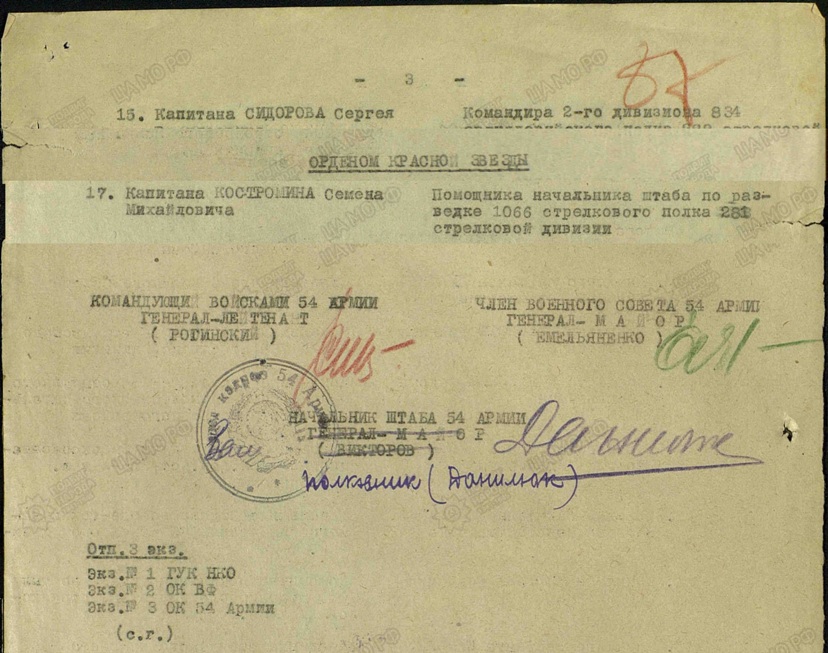 - 3 -
87
15. Капитана СИДОРОВА Сергея Командира 2-го дивизиона 834
ОРДЕНОМ КРАСНОЙ ЗВЕЗДЫ
17. Капитана КОСТРОМИНА Семена Помощника начальника штаба по раз-
Михайловича ведке 1066 стрелкового полка 281
стрелковой дивизии
КОМАНДУЮЩИЙ ВОЙСКАМИ 54 АРМИИ ЧЛЕН ВОЕННОГО СОВЕТА 54 АРМИИ
ГЕНЕРАЛ-ЛЕЙТЕНАНТ ГЕНЕРАЛ- М А Й О Р
( РОГИНСКИЙ ) ( ЕМЕЛЬЯНЕНКО )
НАЧАЛЬНИК ШТАБА 54 АРМИИ
ГЕНЕРАЛ- М А Й О Р
( ВИКТОРОВ )
полковник (Данилюк)
Отп.3 экз.
Экз.№ 1 ГУК НКО
Экз.№ 2 ОК ВФ
Экз.№ 3 ОК 54 Армии
(с.г.)
ЦАМО РФ